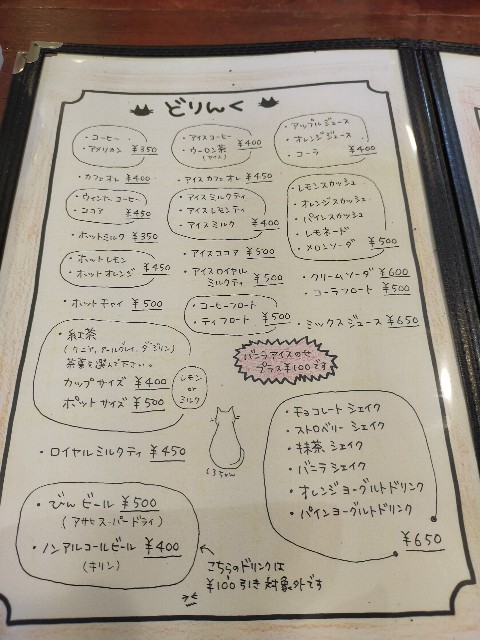 どりんく
・コーヒー
・アメリカン ¥350
・カフェオレ ¥400
・ウィンナーコーヒー
・ココア ¥450
・ホットミルク ¥350
・ホットレモン
・ホットオレンジ ¥450
・ホットチャイ ¥500
・紅茶
(ケニア、アールグレイ、ダージリン)
茶葉を選んで下さい。
カップサイズ ¥400
ポットサイズ ¥500
レモン
or
ミルク
・ロイヤルミルクティ ¥450
・びんビール ¥500
(アサヒスーパードライ)
・ノンアルコールビール ¥400
(キリン)
・アイスコーヒー
・ウーロン茶 ¥400
(アイス)
・アイスカフェオレ ¥450
・アイスミルクティ
・アイスレモンティ
・アイスミルク ¥400
・アイスココア ¥500
・アイスロイヤル
ミルクティ ¥500
・コーヒーフロート
・ティフロート ¥500
・アップルジュース
・オレンジジュース
・コーラ ¥400
・レモンスカッシュ
・オレンジスカッシュ
・パインスカッシュ
・レモネード
・メロンソーダ ¥500
・クリームソーダ ¥600
・コーラフロート ¥500
・ミックスジュース ¥650
バニラアイスのせ
プラス¥100です
・チョコレートシェイク
・ストロベリーシェイク
・抹茶シェイク
・バニラシェイク
・オレンジヨーグルトドリンク
・パインヨーグルトドリンク
¥650
こちらのドリンクは
¥100引き対象外です